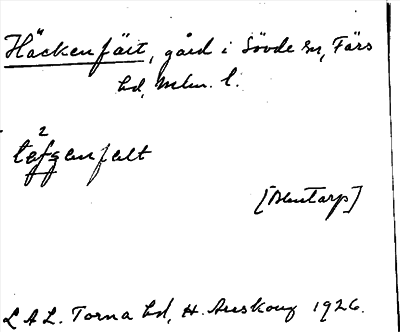 Häckenfäit, gård i Sövde sn, Färs
hd, Mlm. l.
2
[Blentarp]
L A L. Torna hd, H. Auskoug 1926.